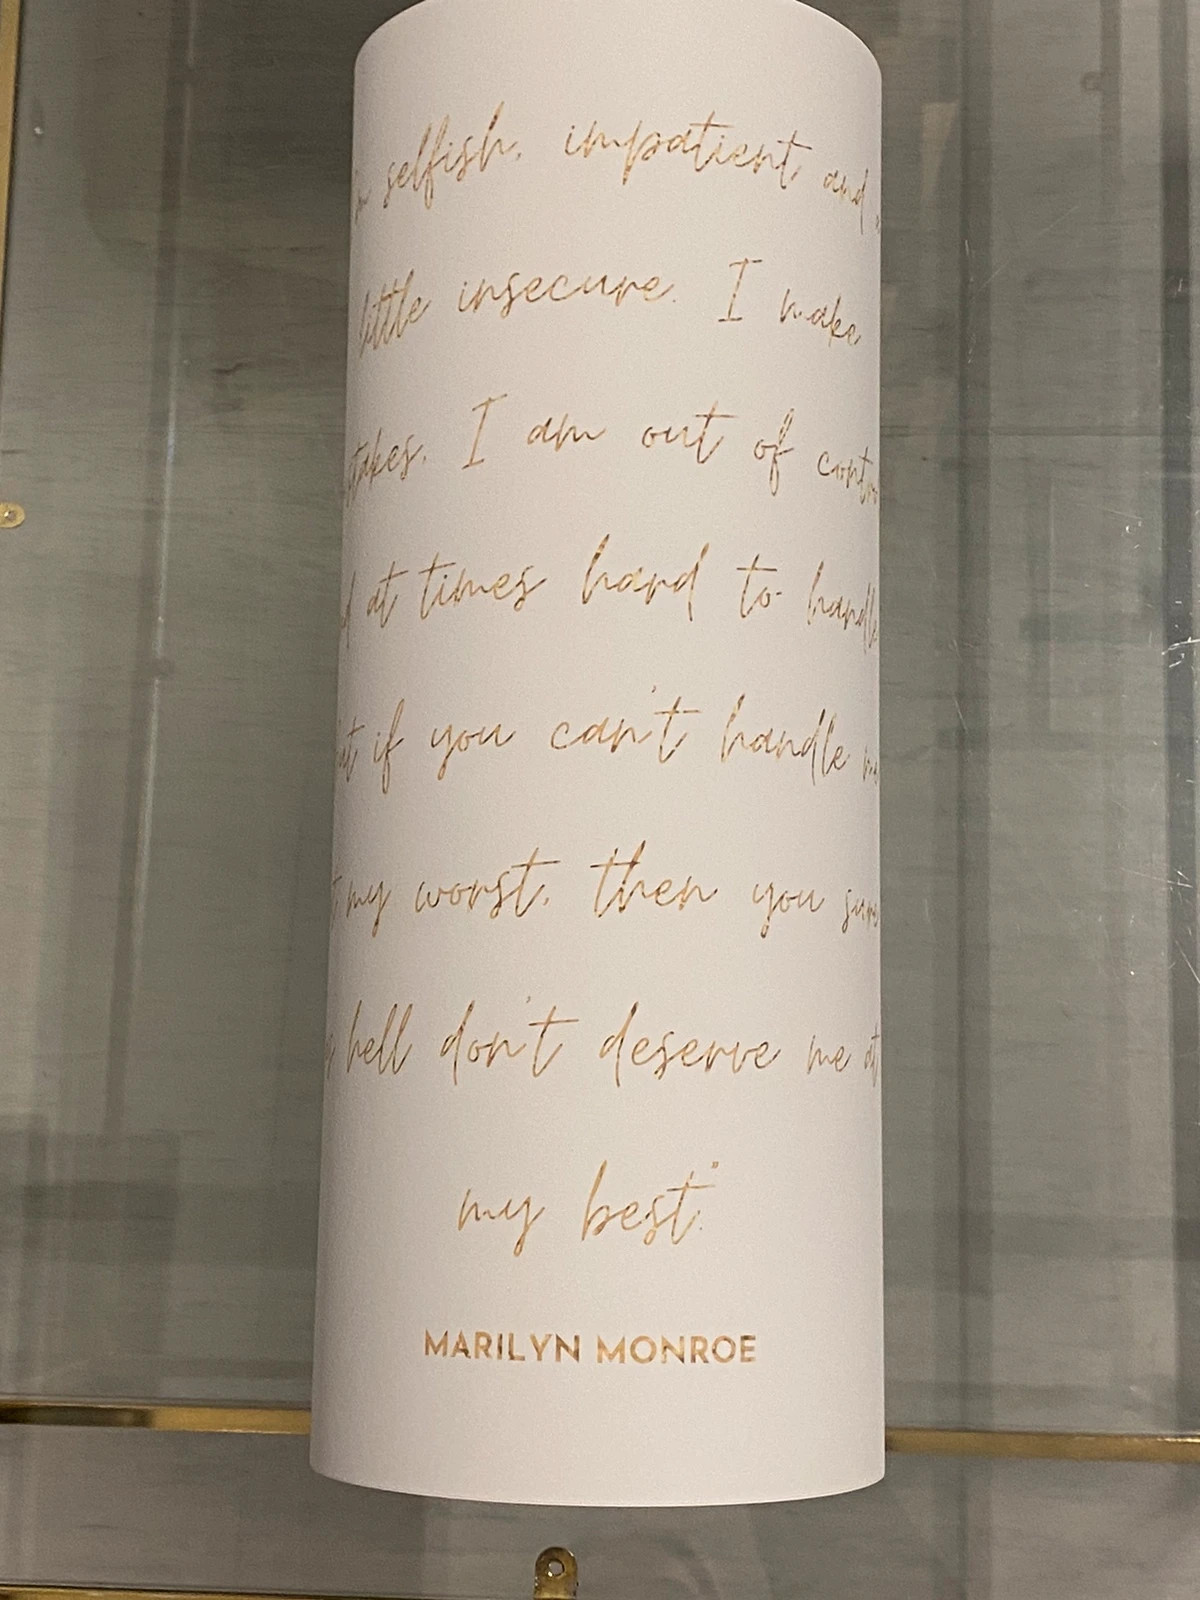 selfish, impatient and
little insecure. I make
I am out of
at times hard to handle
if you can't handle me
my worst, then you sure
hell don't deserve me at
my best."
MARILYN MONROE